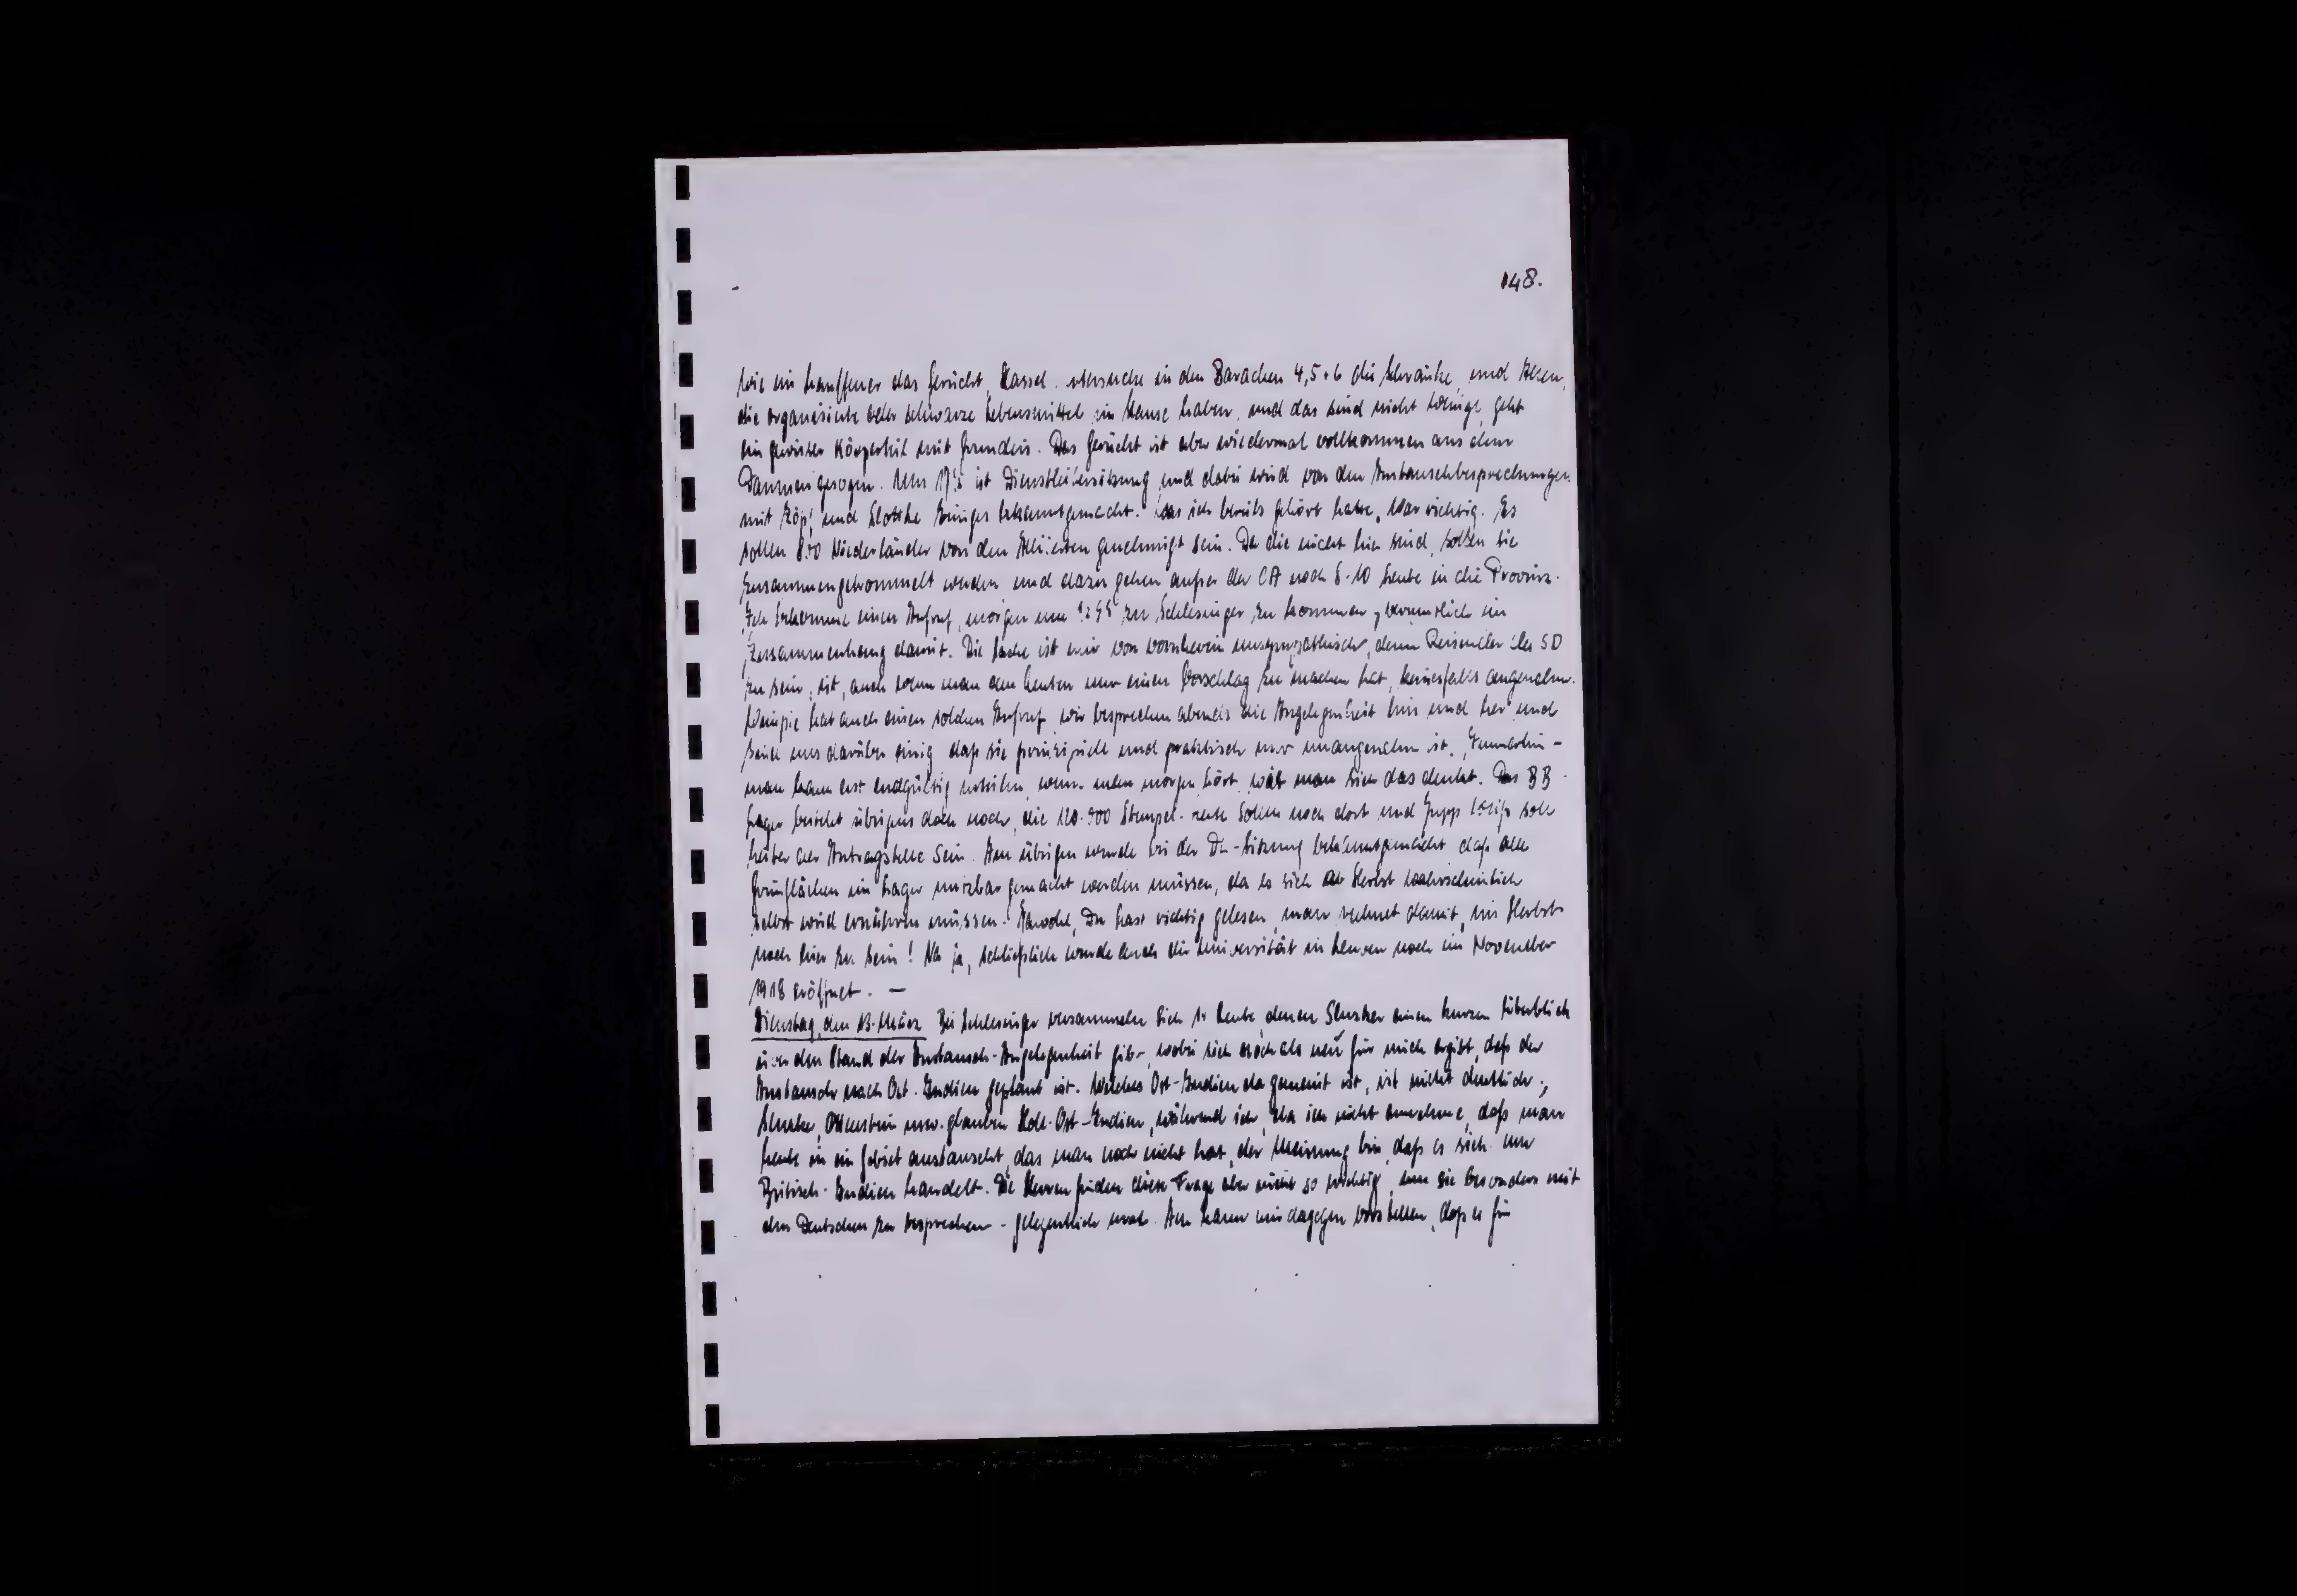 148.
Wie ein Lauffeuer das Gerücht, Kassel untersuche in den Baracken 4, 5 + 6 die Schränke, und
die organisierte oder schwarze Lebensmittel im Hause haben, und das sind nicht wenige, geht
ein gewisser Das Gerücht ist aber wiedermal vollkommen aus dem
Daumen gesogen. Um ist Dienstleitersitzung und dabei wird von den Austauschbesprechungen
mit und Slottke einiges bekanntgemacht. Was ich bereits gehört habe, war richtig. Es
sollen Niederländer von den Alliierten genehmigt sein. Da die nicht hier sind, sollen sie
zusammengetrommelt werden und dazu gehen außer der CA noch 8-10 Leute in die Provinz.
Ich bekomme einen Aufruf, morgen um zu Schlesinger zu kommen, vermutlich im
Zusammenhang damit. Die Sache ist mir von vornherein unsympathisch, denn des SD
zu sein, ist, auch wenn man den Leuten nur einen Vorschlag zu machen hat, keinesfalls angenehm.
Wimpie hat auch einen solchen Aufruf, wir besprechen abends die Angelegenheit hin und her und
sind uns darüber einig daß sie prinzipiell und praktisch nur unangenehm ist. Immerhin -
man kann erst endgültig urteilen, wenn man morgen hört, wie man sich das denkt. Das BB-
Lager besteht übrigens doch noch, die 120.000 Stempel-Leute sollen noch dort und soll
Leiter der Antragstelle sein. Im übrigen wurde in der DL-Sitzung bekanntgemacht daß alle
Grünflächen im Lager nutzbar gemacht werden müssen, da es sich ab Herbst wahrscheinlich
selbst wird ernähren müssen. Jawohl, Du hast richtig gelesen, man rechnet damit, im Herbst
noch hier zu sein! Na ja, schließlich wurde auch die Universität in Leuven noch im November
1918 eröffnet. —
Dienstag, den Bei Schlesinger versammeln sich 14 Leute denen Slusker einen kurzen Überblick
über den Stand der Austausch-Angelegenheit gibt, wobei sich noch als neu für mich ergibt, daß der
Austausch nach Ost-Indien geplant ist. Welches Ost-Indien da gemeint ist, ist nicht deutlich;
Slusker, Ottenstein usw. glauben Holl. Ost-Indien, während ich, da ich nicht annehme, daß man
heute in ein Gebiet austauscht, das man noch nicht hat, der Meinung bin, daß es sich um
Britisch-Indien handelt. Die Herren finden diese Frage aber nicht so wichtig, um sie besonders mit
den Deutschen zu besprechen - gelegentlich mal. Ich kann mir dagegen vorstellen, daß es für